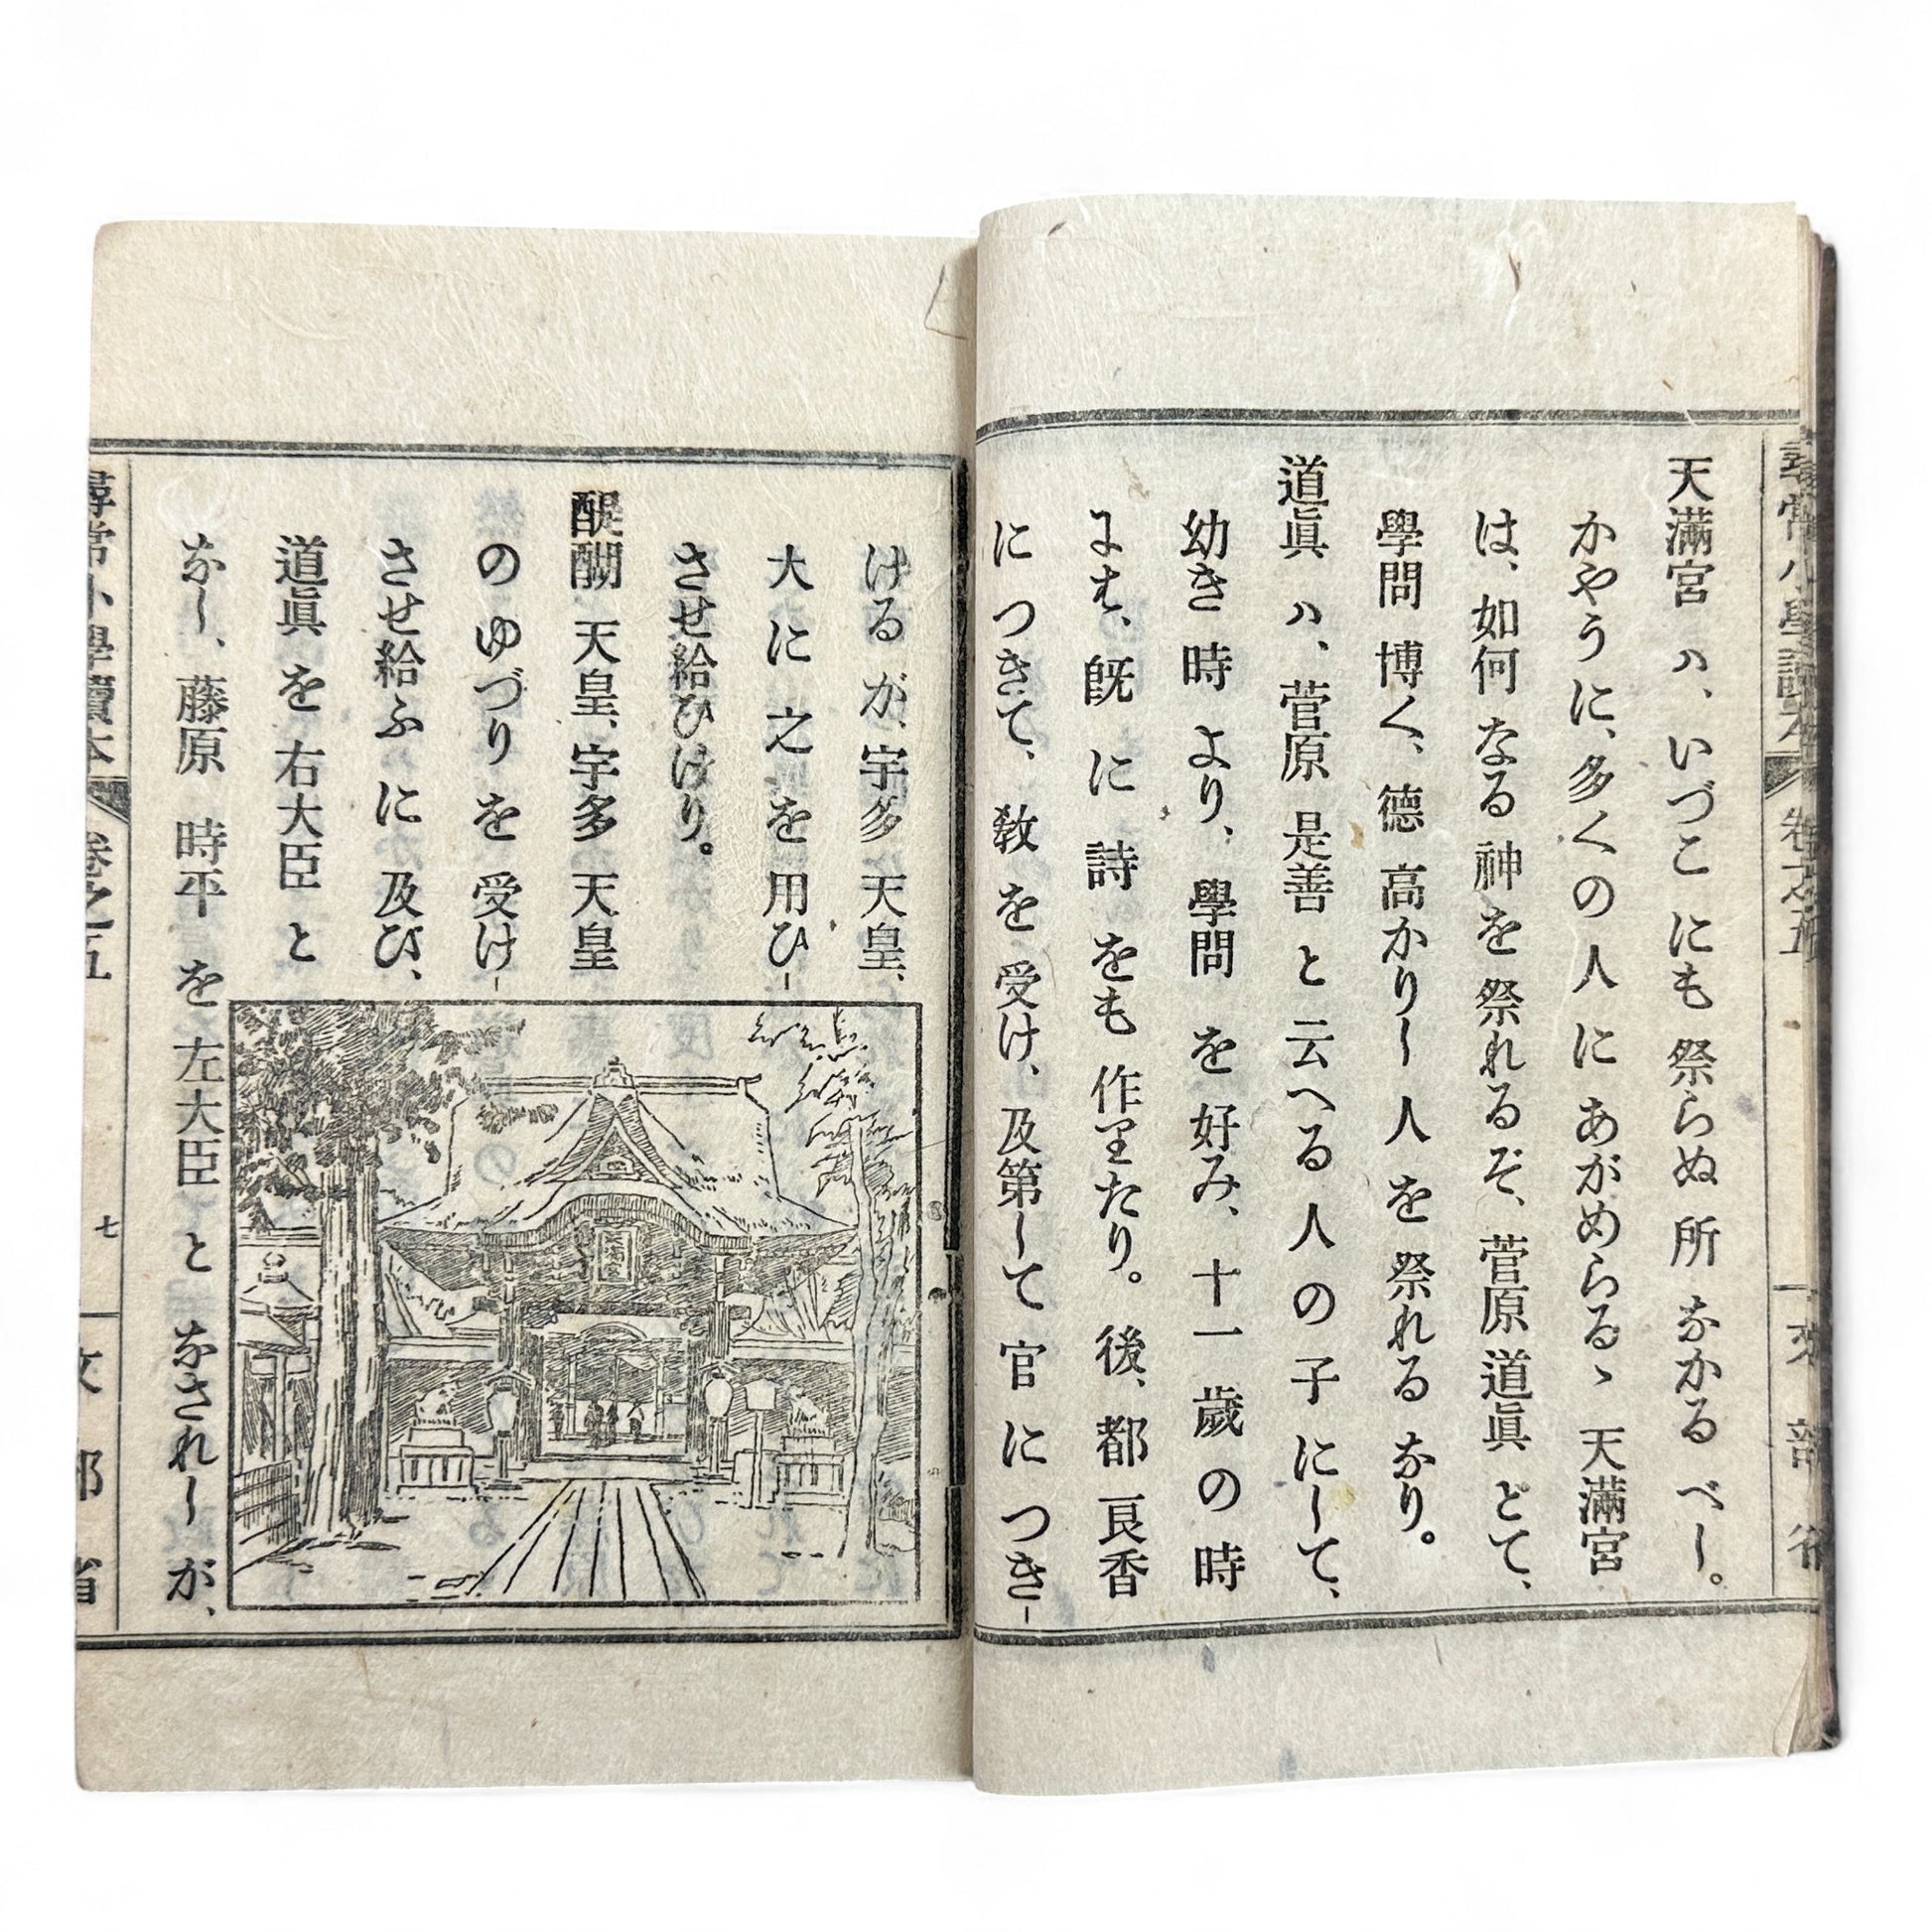 尋常小學讀本 卷之五 文部省
天滿宮 ハ、いづこ にも 祭らぬ 所 なかる べし。
かやうに、多くの 人 に あがめらるゝ 天滿宮
は、如何 なる 神を 祭れる ぞ、菅原 道眞 とて、
學問 博く、德 高かりし 人 を 祭れる なり。
道眞 ハ、菅原 是善 と 云へる 人 の 子 にして、
幼き 時 より、學問 を 好み、十一 歲 の 時
にも、既 に 詩 をも 作りたり。後、都 良香
に つきて、敎 を 受け、及第して 官 に つき-
ける が、宇多 天皇、
大 に 之 を 用ひ-
させ給ひけり。
醍醐 天皇、宇多 天皇
の ゆづり を 受け-
させ給ふ に 及び、
道眞 を 右大臣 と
なし、藤原 時平 を 左大臣 と なされし が、
尋常小學讀本 卷之五 七 文部省